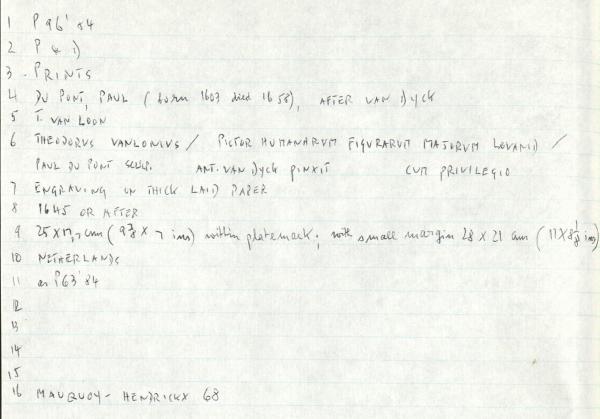 1 P 96' 84
2 P & D
3 . PRINTS
4 DU PONT, PAUL (born 1603 died 1658), AFTER VAN DYCK
5 T. VAN LOON
6 THEODORVS VANLONIVS / PICTOR HUMANARVM FIGVRARVM MAJORVM LOVANIJ /
PAUL DU PONT SCULP. ANT. VAN DYCK PINXIT CUM PRIVILEGIO
7 ENGRAVING ON THICK LAID PAPER
8 1645 OR AFTER
9 25 X 17,7 cm ( 9 7/8 X 7 ins) within platemark; with small margin 28 X 21 cm ( 11 X 8 1/8 ins)
10 NETHERLANDS
11 as P63'84
12
13
14
15
16 MAUQUOY - HENDRICKX 68